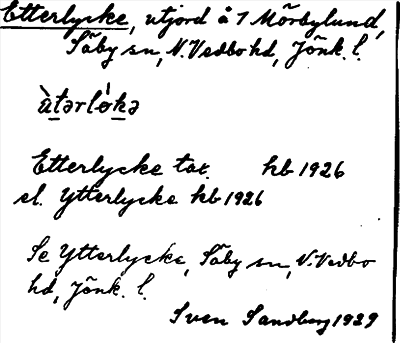 Etterlycke, utjord å 1 Mörbylund,
Säby sn, N. Vedbo hd, Jönk. l.
ätərløkə
Etterlycke tax. hb 1926
el. Ytterlycke hb 1926
Se Ytterlycke, Säby sn, N. Vedbo
hd, Jönk. l.
Sven Sandberg 1929